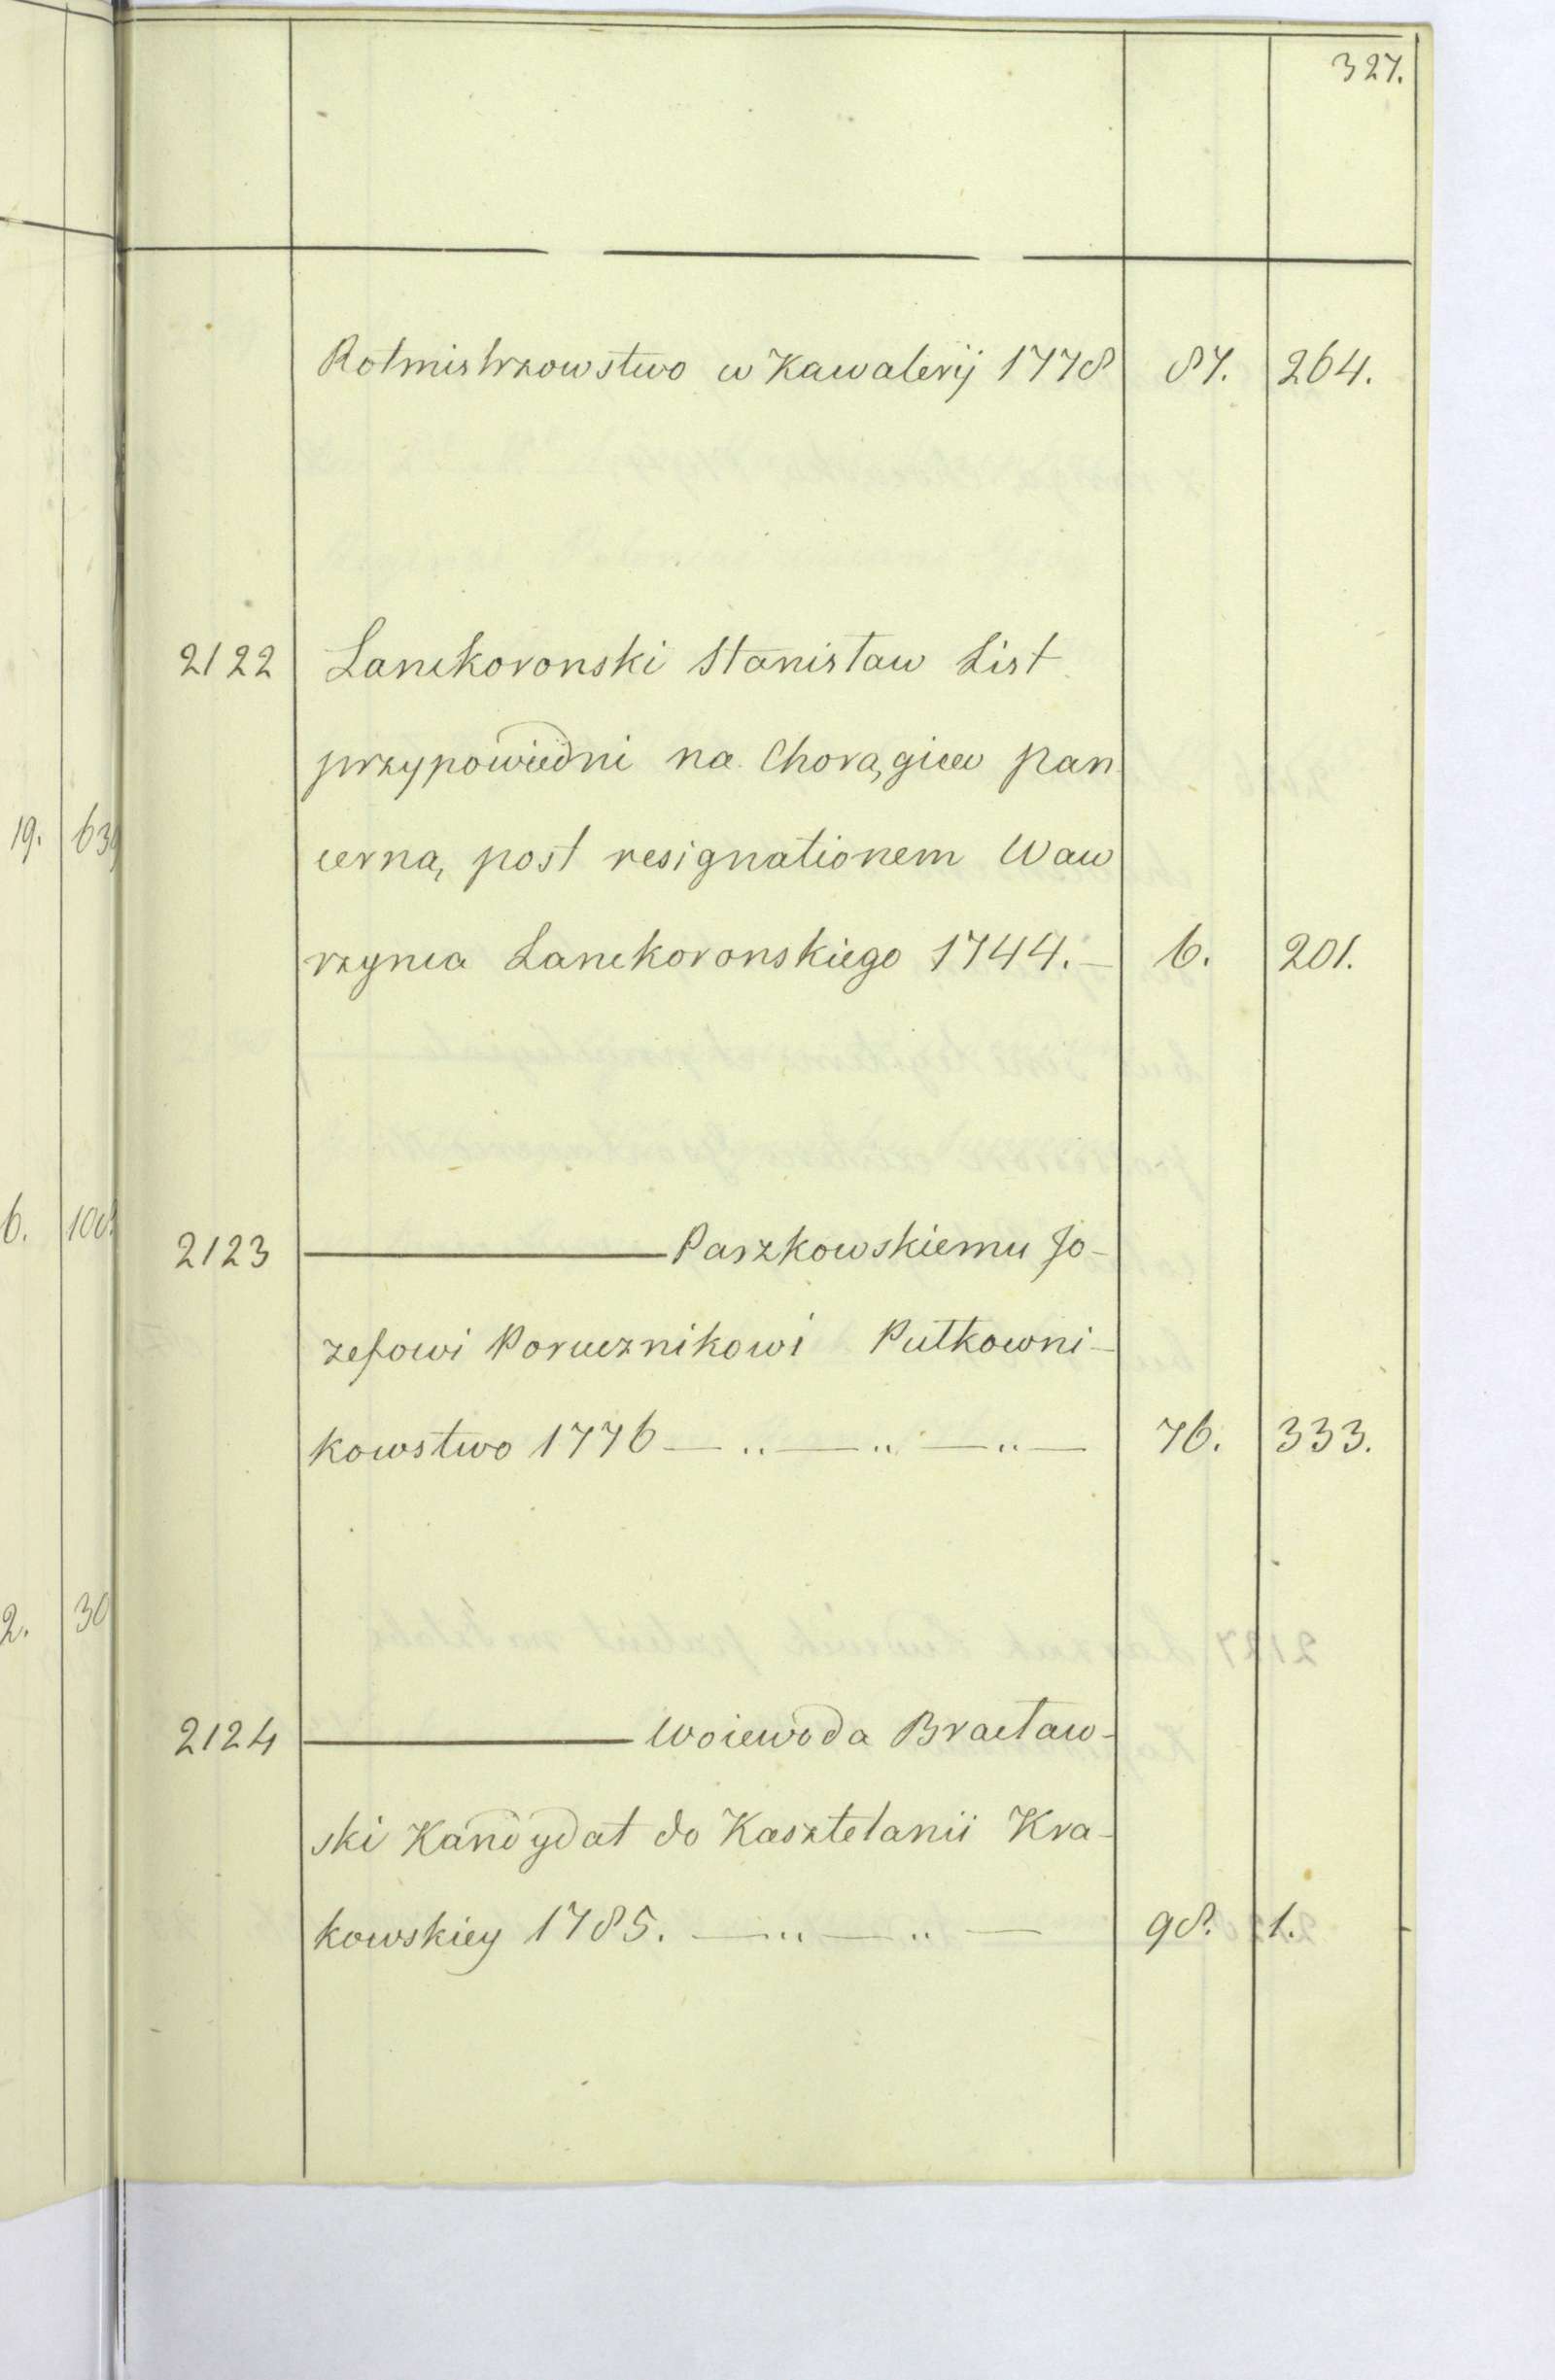 327.
Rotmistrzowstwo w Kawaleryj 1778 87. 264.
2122 Lanckoronski Stanisław List
przypowiedni na Chorągiew pan
cerną, post resignationem Waw
rzynca Lanckoronskiego 1744. — 6. 201.
2123 ——— Paszkowskiemu Jo-
zefowi Porucznikowi Pułkowni-
kowstwo 1776 — „ — „ — „ — 76. 333.
2124 ——— Woiewoda Bracław-
ski Kandydat do Kasztelanii Kra-
kowskiey 1785. — „ — „ — 98. 1.
19.
6.
2.